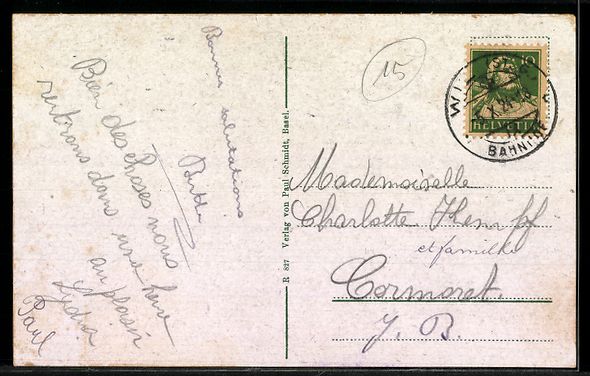 Bonnes salutations
Bien des choses nous
rentrons dans une heure
au plaisir
Lydia
Paul
R 827 Verlag von Paul Schmidt, Basel.
15
10
HELVETIA
BAHNH
Mademoiselle
Charlotte
et famille
Cormoret
J. B.